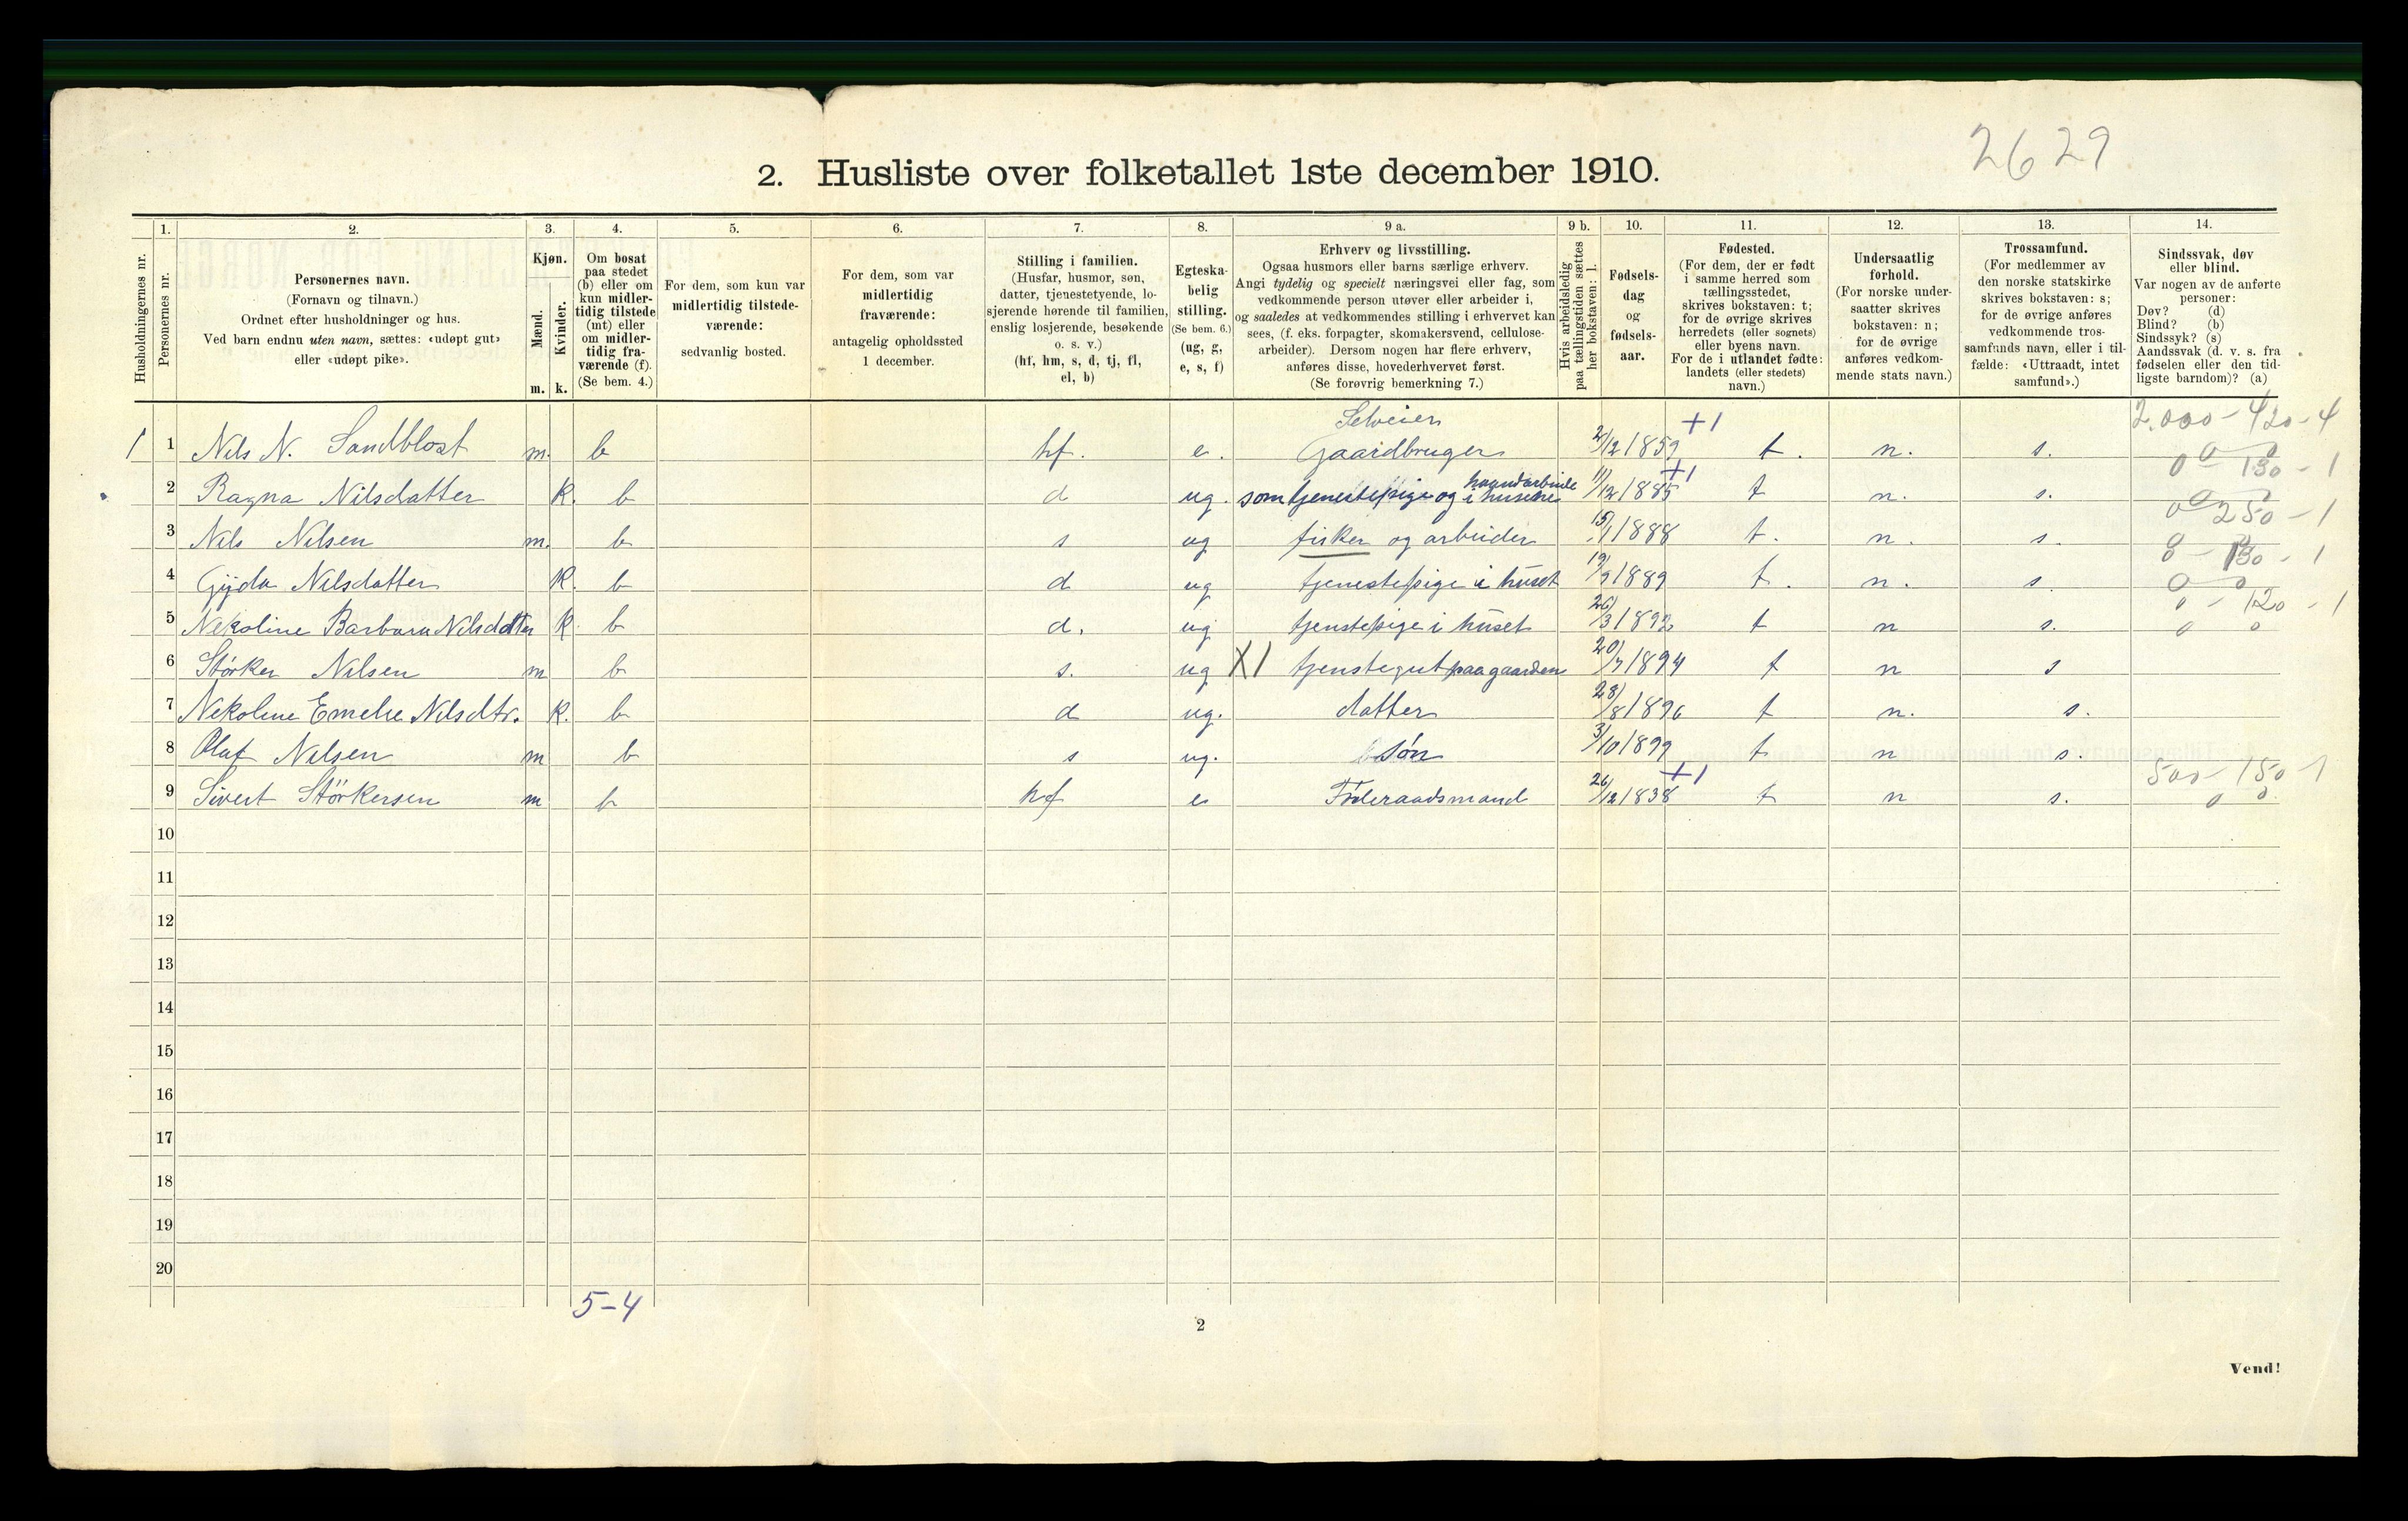 2629
2. Husliste over folketallet 1ste december 1910.
Husholdningernes nr.
1. Personernes nr.
2. Personernes navn.
(Fornavn og tilnavn.)
Ordnet efter husholdninger og hus.
Ved barn endnu uten navn, sættes: «udøpt gut»
eller «udøpt pike».
3. Kjøn.
Mænd. m.
Kvinder. k.
4. Om bosat
paa stedet
(b) eller om
kun midler-
tidig tilstede
(mt) eller
om midler-
tidig fra-
værende (f).
(Se bem. 4.)
5. For dem, som kun var
midlertidig tilstede-
værende:
sedvanlig bosted.
6. For dem, som var
midlertidig
fraværende:
antagelig opholdssted
1 december.
7. Stilling i familien.
(Husfar, husmor, søn,
datter, tjenestetyende, lo-
sjerende hørende til familien,
enslig losjerende, besøkende
o. s. v.)
(hf, hm, s, d, tj, fl,
el, b)
8. Egteska-
belig
stilling.
(Se bem. 6.)
(ug, g,
e, s, f)
9 a. Erhverv og livsstilling.
Ogsaa husmors eller barns særlige erhverv.
Angi tydelig og specielt næringsvei eller fag, som
vedkommende person utøver eller arbeider i,
og saaledes at vedkommendes stilling i erhvervet kan
sees, (f. eks. forpagter, skomakersvend, cellulose-
arbeider). Dersom nogen har flere erhverv,
anføres disse, hovederhvervet først.
(Se forøvrig bemerkning 7.)
9 b. Hvis arbeidsledig
paa tællingstiden sættes
her bokstaven: l.
10. Fødsels-
dag
og
fødsels-
aar.
11. Fødested.
(For dem, der er født
i samme herred som
tællingsstedet,
skrives bokstaven: t;
for de øvrige skrives
herredets (eller sognets)
eller byens navn.
For de i utlandet fødte:
landets (eller stedets)
navn.)
12. Undersaatlig
forhold.
(For norske under-
saatter skrives
bokstaven: n;
for de øvrige
anføres vedkom-
mende stats navn.)
13. Trossamfund.
(For medlemmer av
den norske statskirke
skrives bokstaven: s;
for de øvrige anføres
vedkommende tros-
samfunds navn, eller i til-
fælde: «Uttraadt, intet
samfund».)
14. Sindssvak, døv
eller blind.
Var nogen av de anførte
personer:
Døv? (d)
Blind? (b)
Sindssyk? (s)
Aandssvak (d. v. s. fra
fødselen eller den tid-
ligste barndom)? (a)
Selveier +1 2.000 - 420 - 4
1 1 Nils N. Sandblost m. b hf. e. Gaardbruger 2/12 1859 t. n. s. 0 0
haandarbeide +1 0 - 130 - 1
2 Ragna Nilsdatter k. b d ug. som tjenestepige og i huset 11/12 1885 t n. s. 0 0
0 250 - 1
3 Nils Nilsen m. b s ug fisker og arbeider 15/1 1888 t. n. s. 0 0
0 - 130 - 1
4 Gyda Nilsdatter k. b d ug tjenestepige i huset 19/9 1889 t. n. s. 0 0
0 - 120 - 1
5 Nekoline Barbara Nilsdatter k b d. ug tjenstepige i huset 26/3 1892 t n s. 0 0
6 Störker Nilsen m b s. ug X1 tjenstegut paa gaarden 20/7 1894 t n s
7 Nekoline Emelie Nilsdtr. k. b d ug. datter 28/8 1896 t n. s.
8 Olaf Nilsen m b s ug. søn 3/10 1899 t n s.
+1 500 - 150 - 1
9 Sivert Störkersen m b hf e Føderaadsmand 26/12 1838 t n s. 0 0
10
11
12
13
14
15
16
17
18
19
20
5-4
2
Vend!